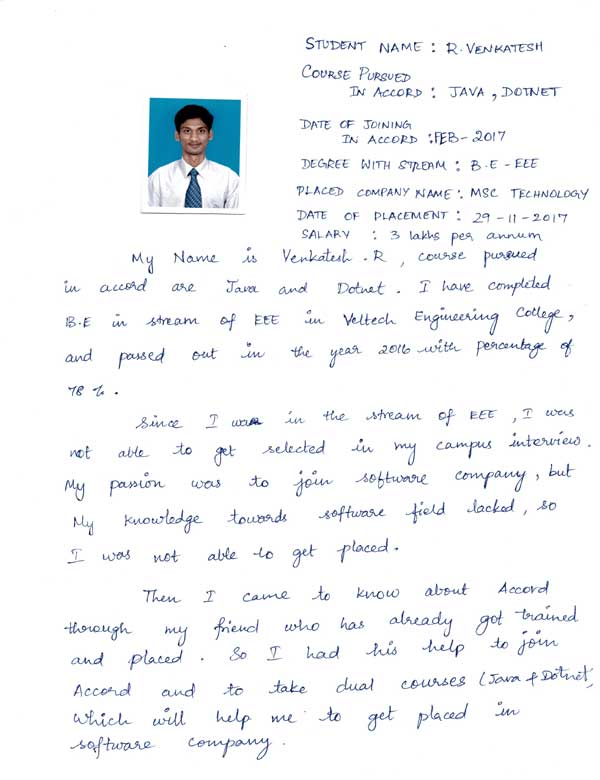 STUDENT NAME : R. VENKATESH
COURSE PURSUED
IN ACCORD : JAVA, DOTNET
DATE OF JOINING
IN ACCORD : FEB-2017
DEGREE WITH STREAM : B.E - EEE
PLACED COMPANY NAME : MSC TECHNOLOGY
DATE OF PLACEMENT : 29-11-2017
SALARY : 3 lakhs per annum
My Name is Venkatesh.R, course pursued
in accord are Java and Dotnet. I have completed
B.E in stream of EEE in Veltech Engineering College,
and passed out in the year 2016 with percentage of
78 %.
Since I was in the stream of EEE, I was
not able to get selected in my campus interview.
My passion was to join software company, but
My knowledge towards software field lacked, so
I was not able to get placed.
Then I came to know about Accord
through my friend who has already got trained
and placed. So I had his help to join
Accord and to take dual courses (Java & Dotnet)
which will help me to get placed in
software company.